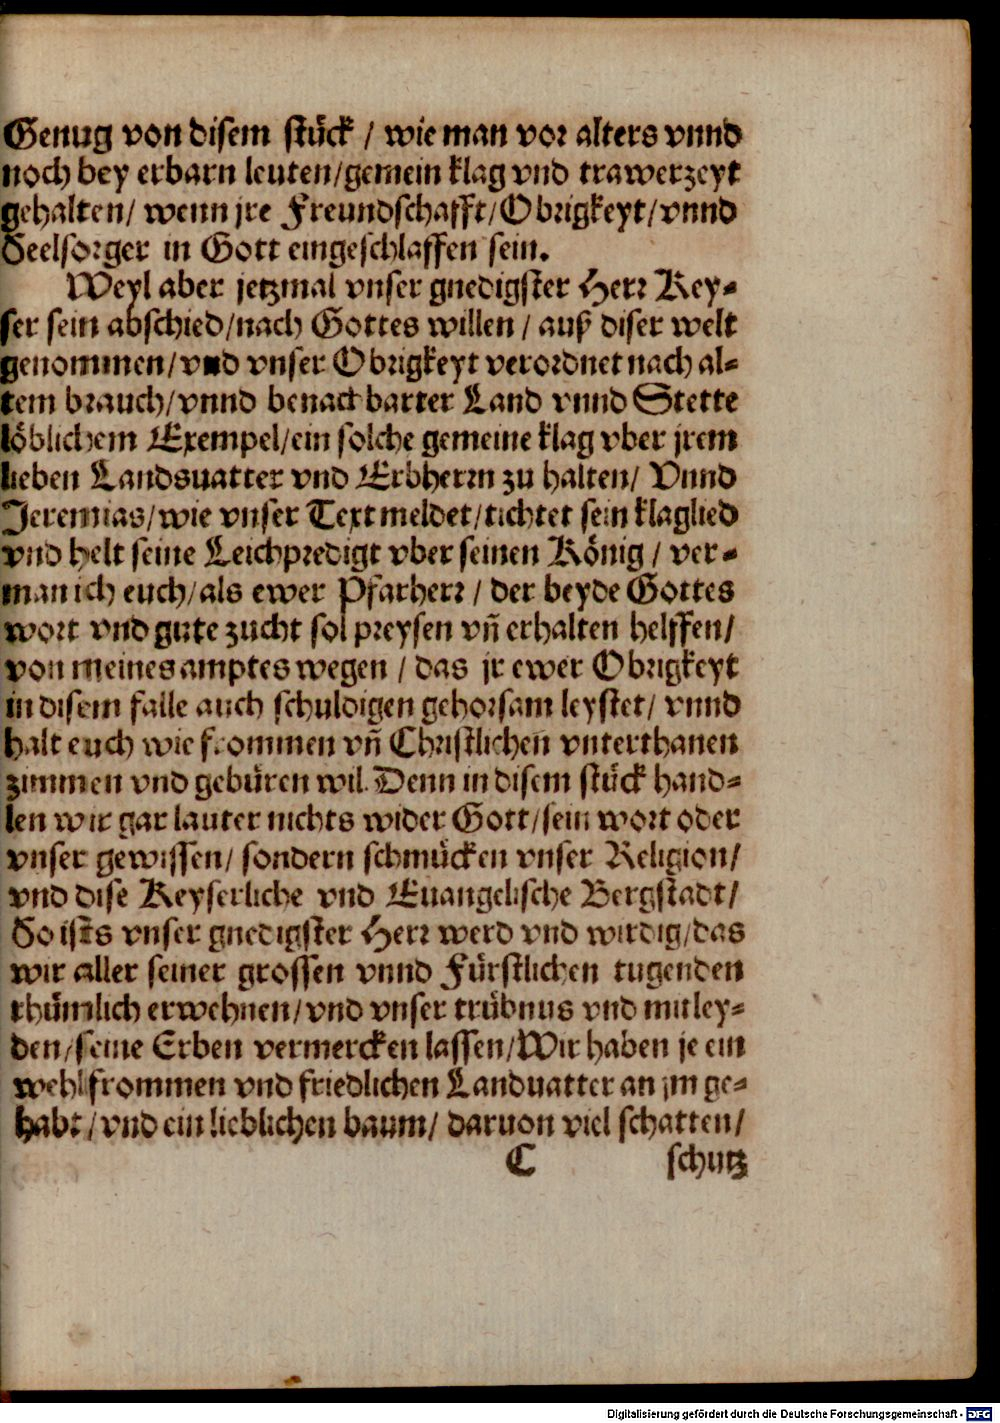 Genug von disem stück / wie man vor alters vnnd
noch bey erbarn leuten/gemein klag vnd trawerzeyt
gehalten/ wenn jre Freundschafft/Obrigkeyt/vnnd
Seelsorger in Gott eingeschlaffen sein.
Weyl aber jetzmal vnser gnedigster Herr Key-
ser sein abschied/nach Gottes willen / auß diser welt
genommen/vnd vnser Obrigkeyt verordnet nach al-
tem brauch/vnnd benachbarter Land vnnd Stette
löblichem Exempel/ein solche gemeine klag vber jrem
lieben Landsuatter vnd Erbherrn zu halten/ Vnnd
Jeremias/wie vnser Text meldet/tichtet sein klaglied
vnd helt seine Leichpredigt vber seinen König / ver-
man ich euch/als ewer Pfarherr / der beyde Gottes
wort vnd gute zucht sol preysen vñ erhalten helffen/
von meines amptes wegen / das jr ewer Obrigkeyt
in disem falle auch schuldigen gehorsam leystet/ vnnd
halt euch wie frommen vñ Christlichen vnterthanen
zimmen vnd gebüren wil. Denn in disem stück hand-
len wir gar lauter nichts wider Gott/sein wort oder
vnser gewissen/ sondern schmücken vnser Religion/
vnd dise Keyserliche vnd Euangelische Bergstadt/
So ists vnser gnedigster Herr werd vnd wirdig/das
wir aller seiner grossen vnnd Fürstlichen tugenden
rhümlich erwehnen/vnd vnser trübnus vnd mitley-
den/seine Erben vermercken lassen/Wir haben je ein
wehl frommen vnd friedlichen Landuatter an jm ge-
habt/vnd ein lieblichen baum/ daruon viel schatten/
C schutz
Digitalisierung gefördert durch die Deutsche Forschungsgemeinschaft - DFG